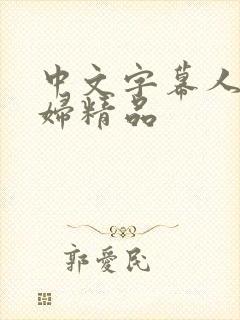 中文字幕人
婦精品
郭愛民